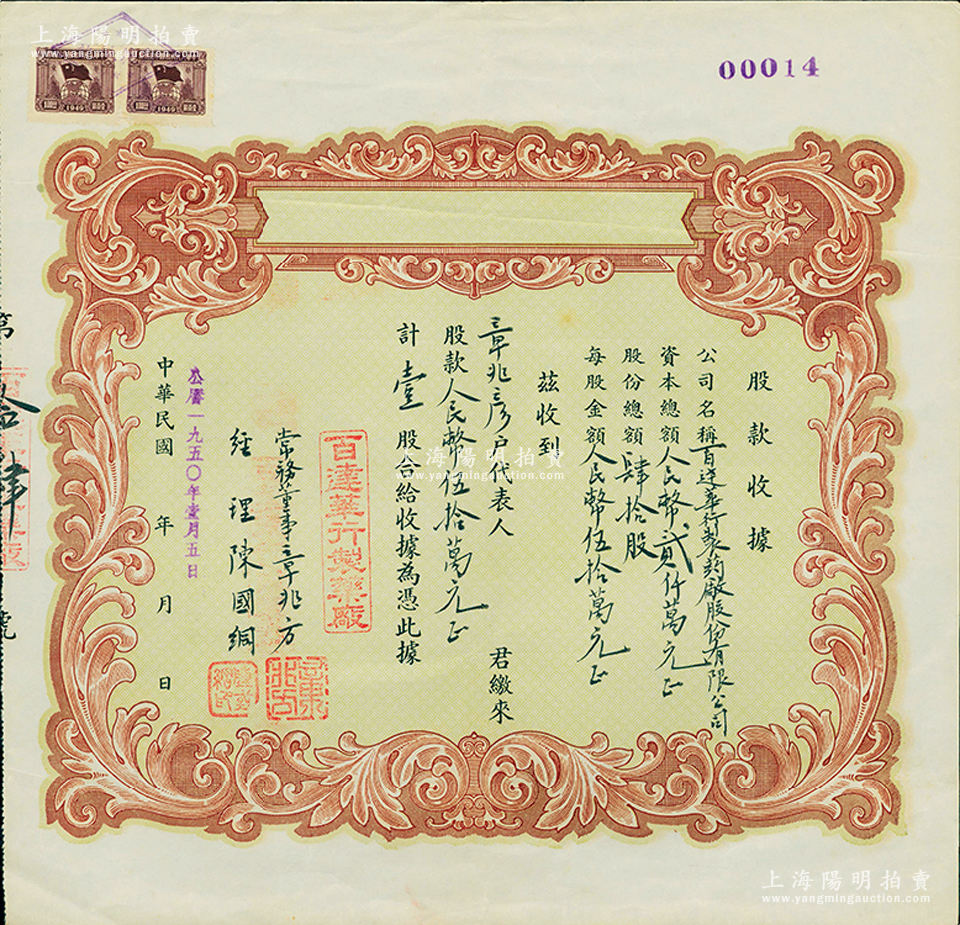 上海陽明拍賣
www.yangmingauction.com
1949
1949
00014
股款收據
公司名稱百達華行製药廠股份有限公司
資本總額人民幣貳仟萬元正
股份總額肆拾股
每股金額人民幣伍拾萬元正
茲收到
章兆彥户代表人 君繳來
股款人民幣伍拾萬元正
計壹股合給收據為憑此據
百達華行製藥廠
常務董事章兆方
經理陳國綱
公曆一九五〇年壹月五日
中華民國 年 月 日
第 拾肆 號
上海陽明拍賣
www.yangmingauction.com
上海陽明拍賣
www.yangmingauction.com